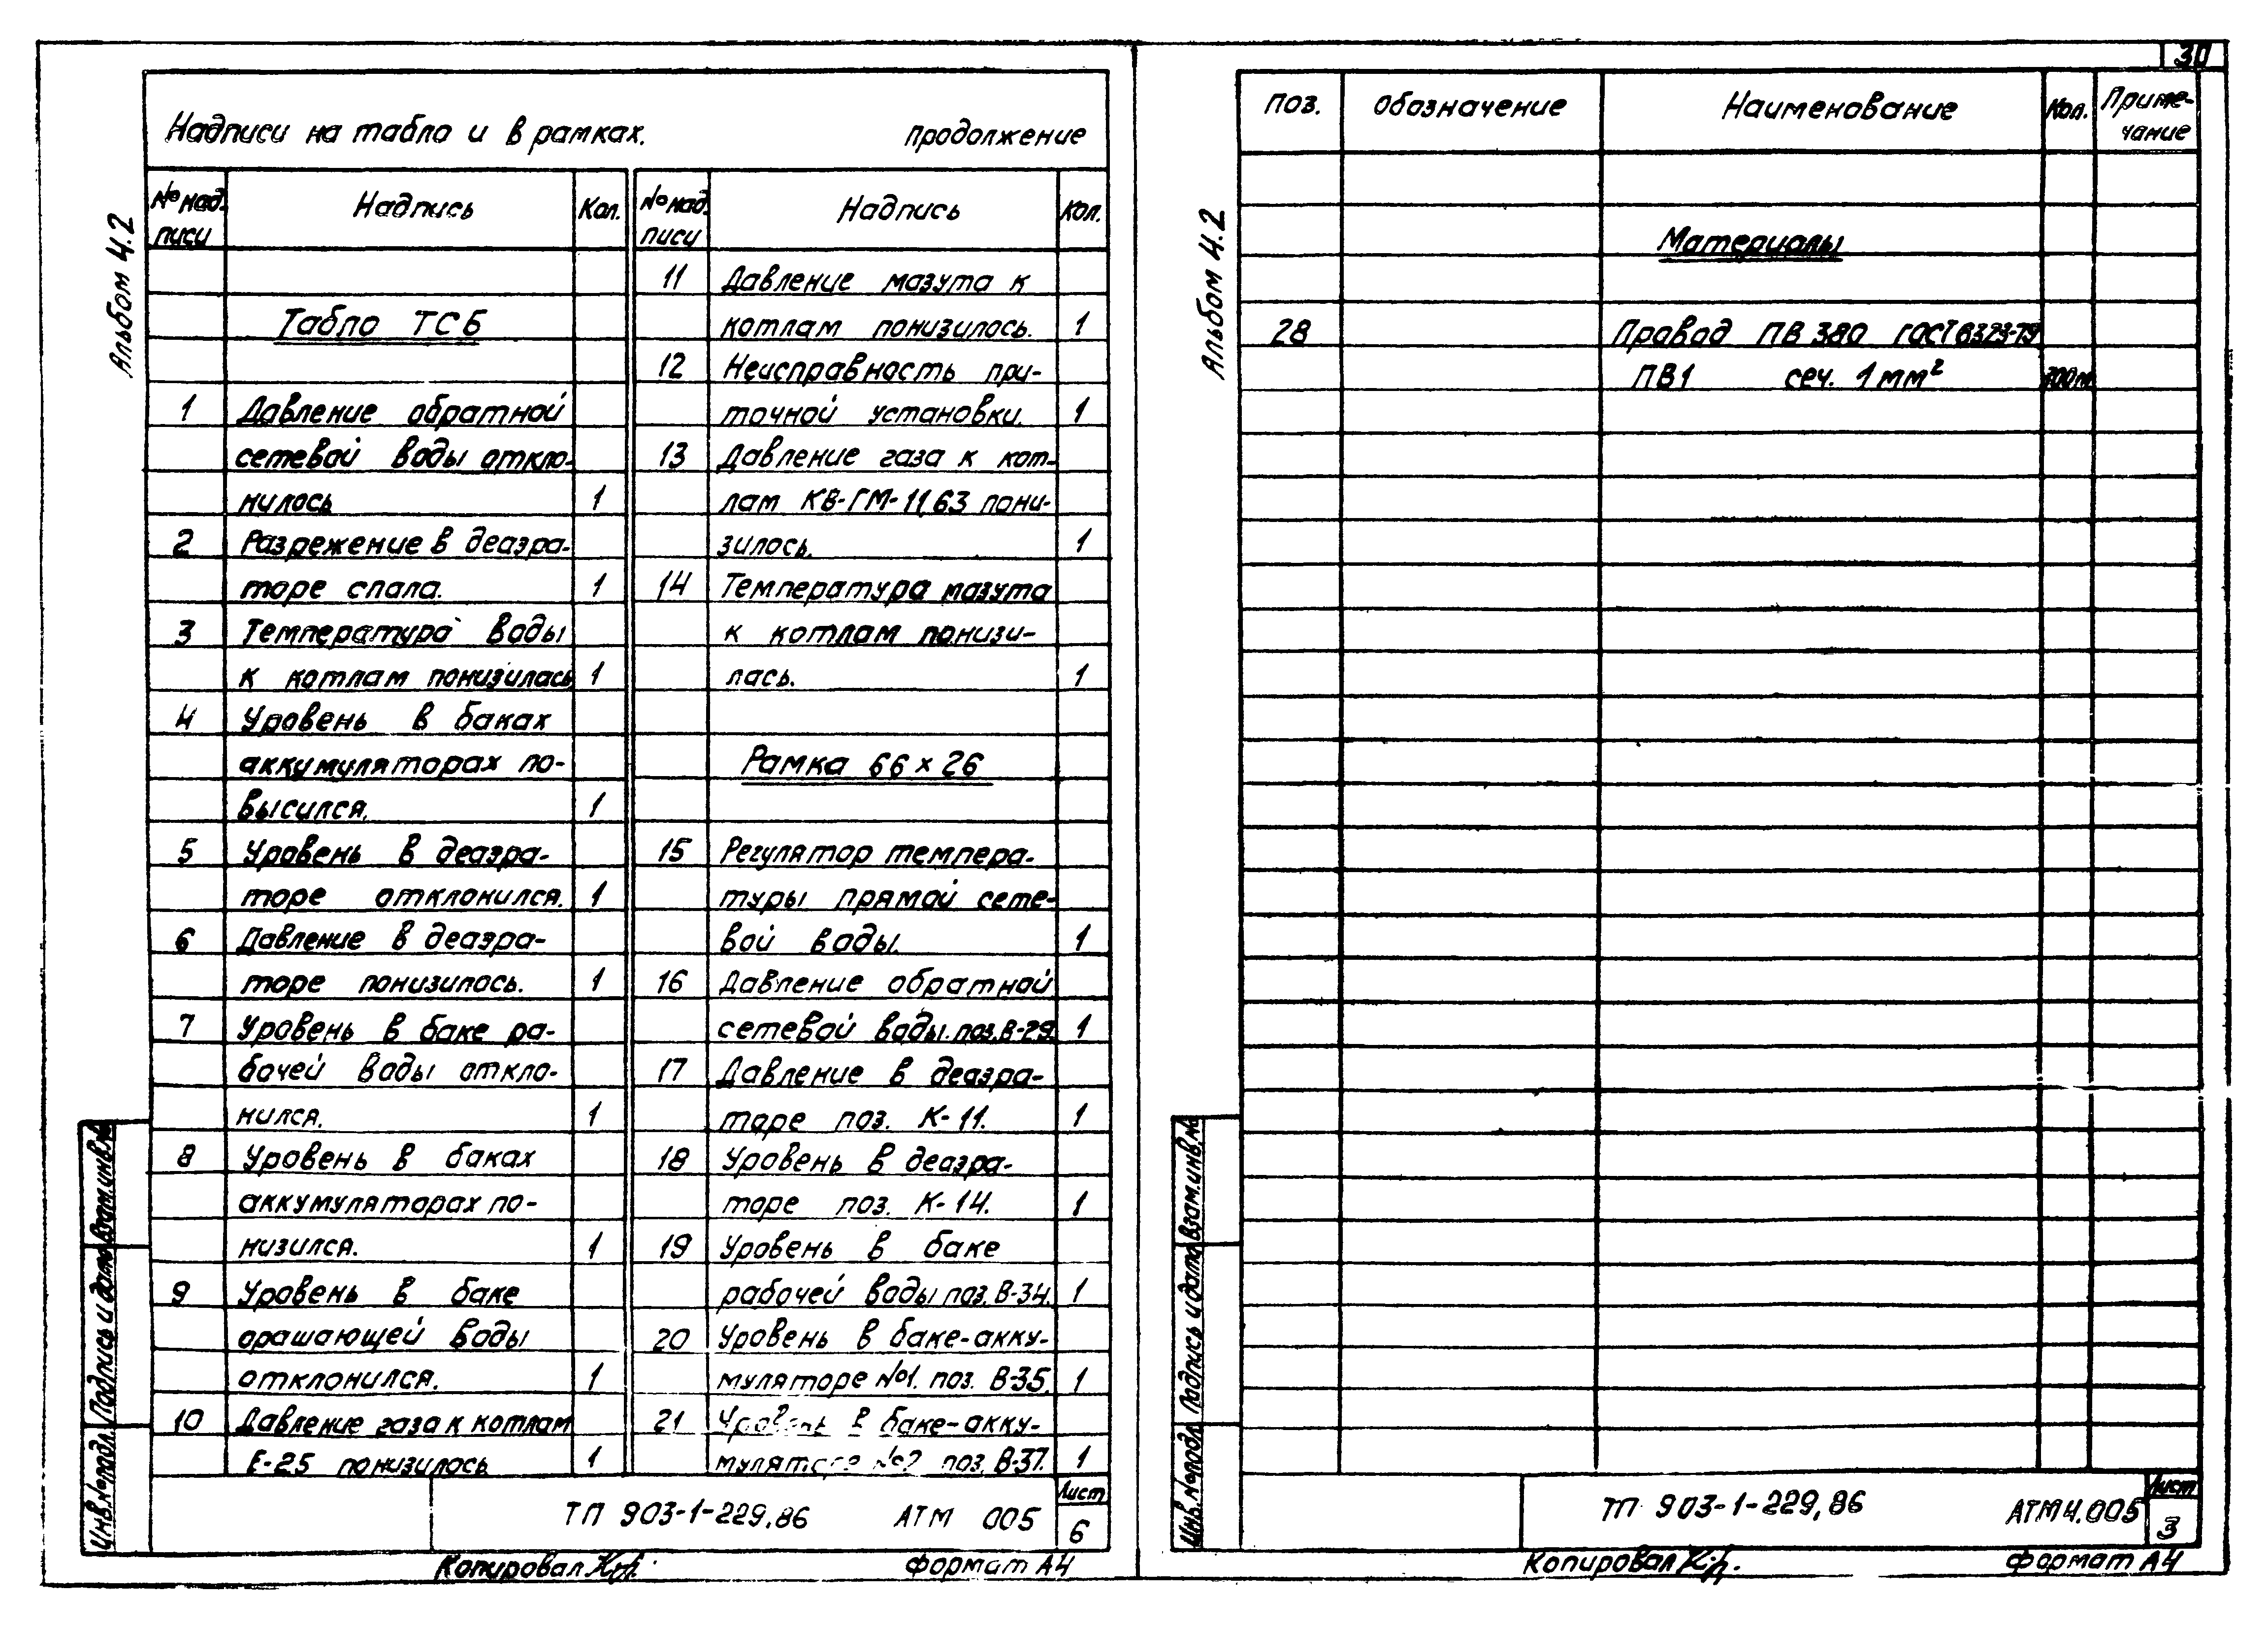 30
Альбом 4.2
Надписи на табло и в рамках. продолжение
№ над- Надпись Кол. № над- Надпись Кол.
писи писи
Табло ТСБ
1 Давление обратной
сетевой воды откло-
нилось 1
2 Разрежение в деаэра-
торе спала. 1
3 Температура воды
к котлам понизилась 1
4 Уровень в баках
аккумуляторах по-
высился. 1
5 Уровень в деаэра-
торе отклонился. 1
6 Давление в деаэра-
торе понизилось. 1
7 Уровень в баке ра-
бочей воды откло-
нился. 1
8 Уровень в баках
аккумуляторах по-
низился. 1
9 Уровень в баке
орашающей воды
отклонился. 1
10 Давление газа к котлам
Е-25 понизилось 1
11 Давление мазута к
котлам понизилось. 1
12 Неисправность при-
точной установки. 1
13 Давление газа к кот-
лам КВ-ГМ-11,63 пони-
зилось. 1
14 Температура мазута
к котлам понизи-
лась. 1
Рамка 66 х 26
15 Регулятор темпера-
туры прямой сете-
вой воды. 1
16 Давление обратной
сетевой воды. поз. В-29. 1
17 Давление в деаэра-
торе поз. К-11. 1
18 Уровень в деаэра-
торе поз. К-14. 1
19 Уровень в баке
рабочей воды поз. В-34. 1
20 Уровень в баке-акку-
муляторе №1. поз. В-35. 1
21 Уровень в баке-акку-
муляторе №2 поз. В-37. 1
Инв.№подл. Подпись и дата Взам.инв.№
ТП 903-1-229.86 АТМ 005 Лист
6
Копировал формат А4
Альбом 4.2
поз. обозначение Наименование Кол. Приме-
чание
Материалы
28 Провод ПВ 380 ГОСТ 6323-79
ПВ1 сеч. 1мм²
Инв.№подл. Подпись и дата Взам.инв.№
ТП 903-1-229,86 АТМ4.005 Лист
3
Копировал формат А4